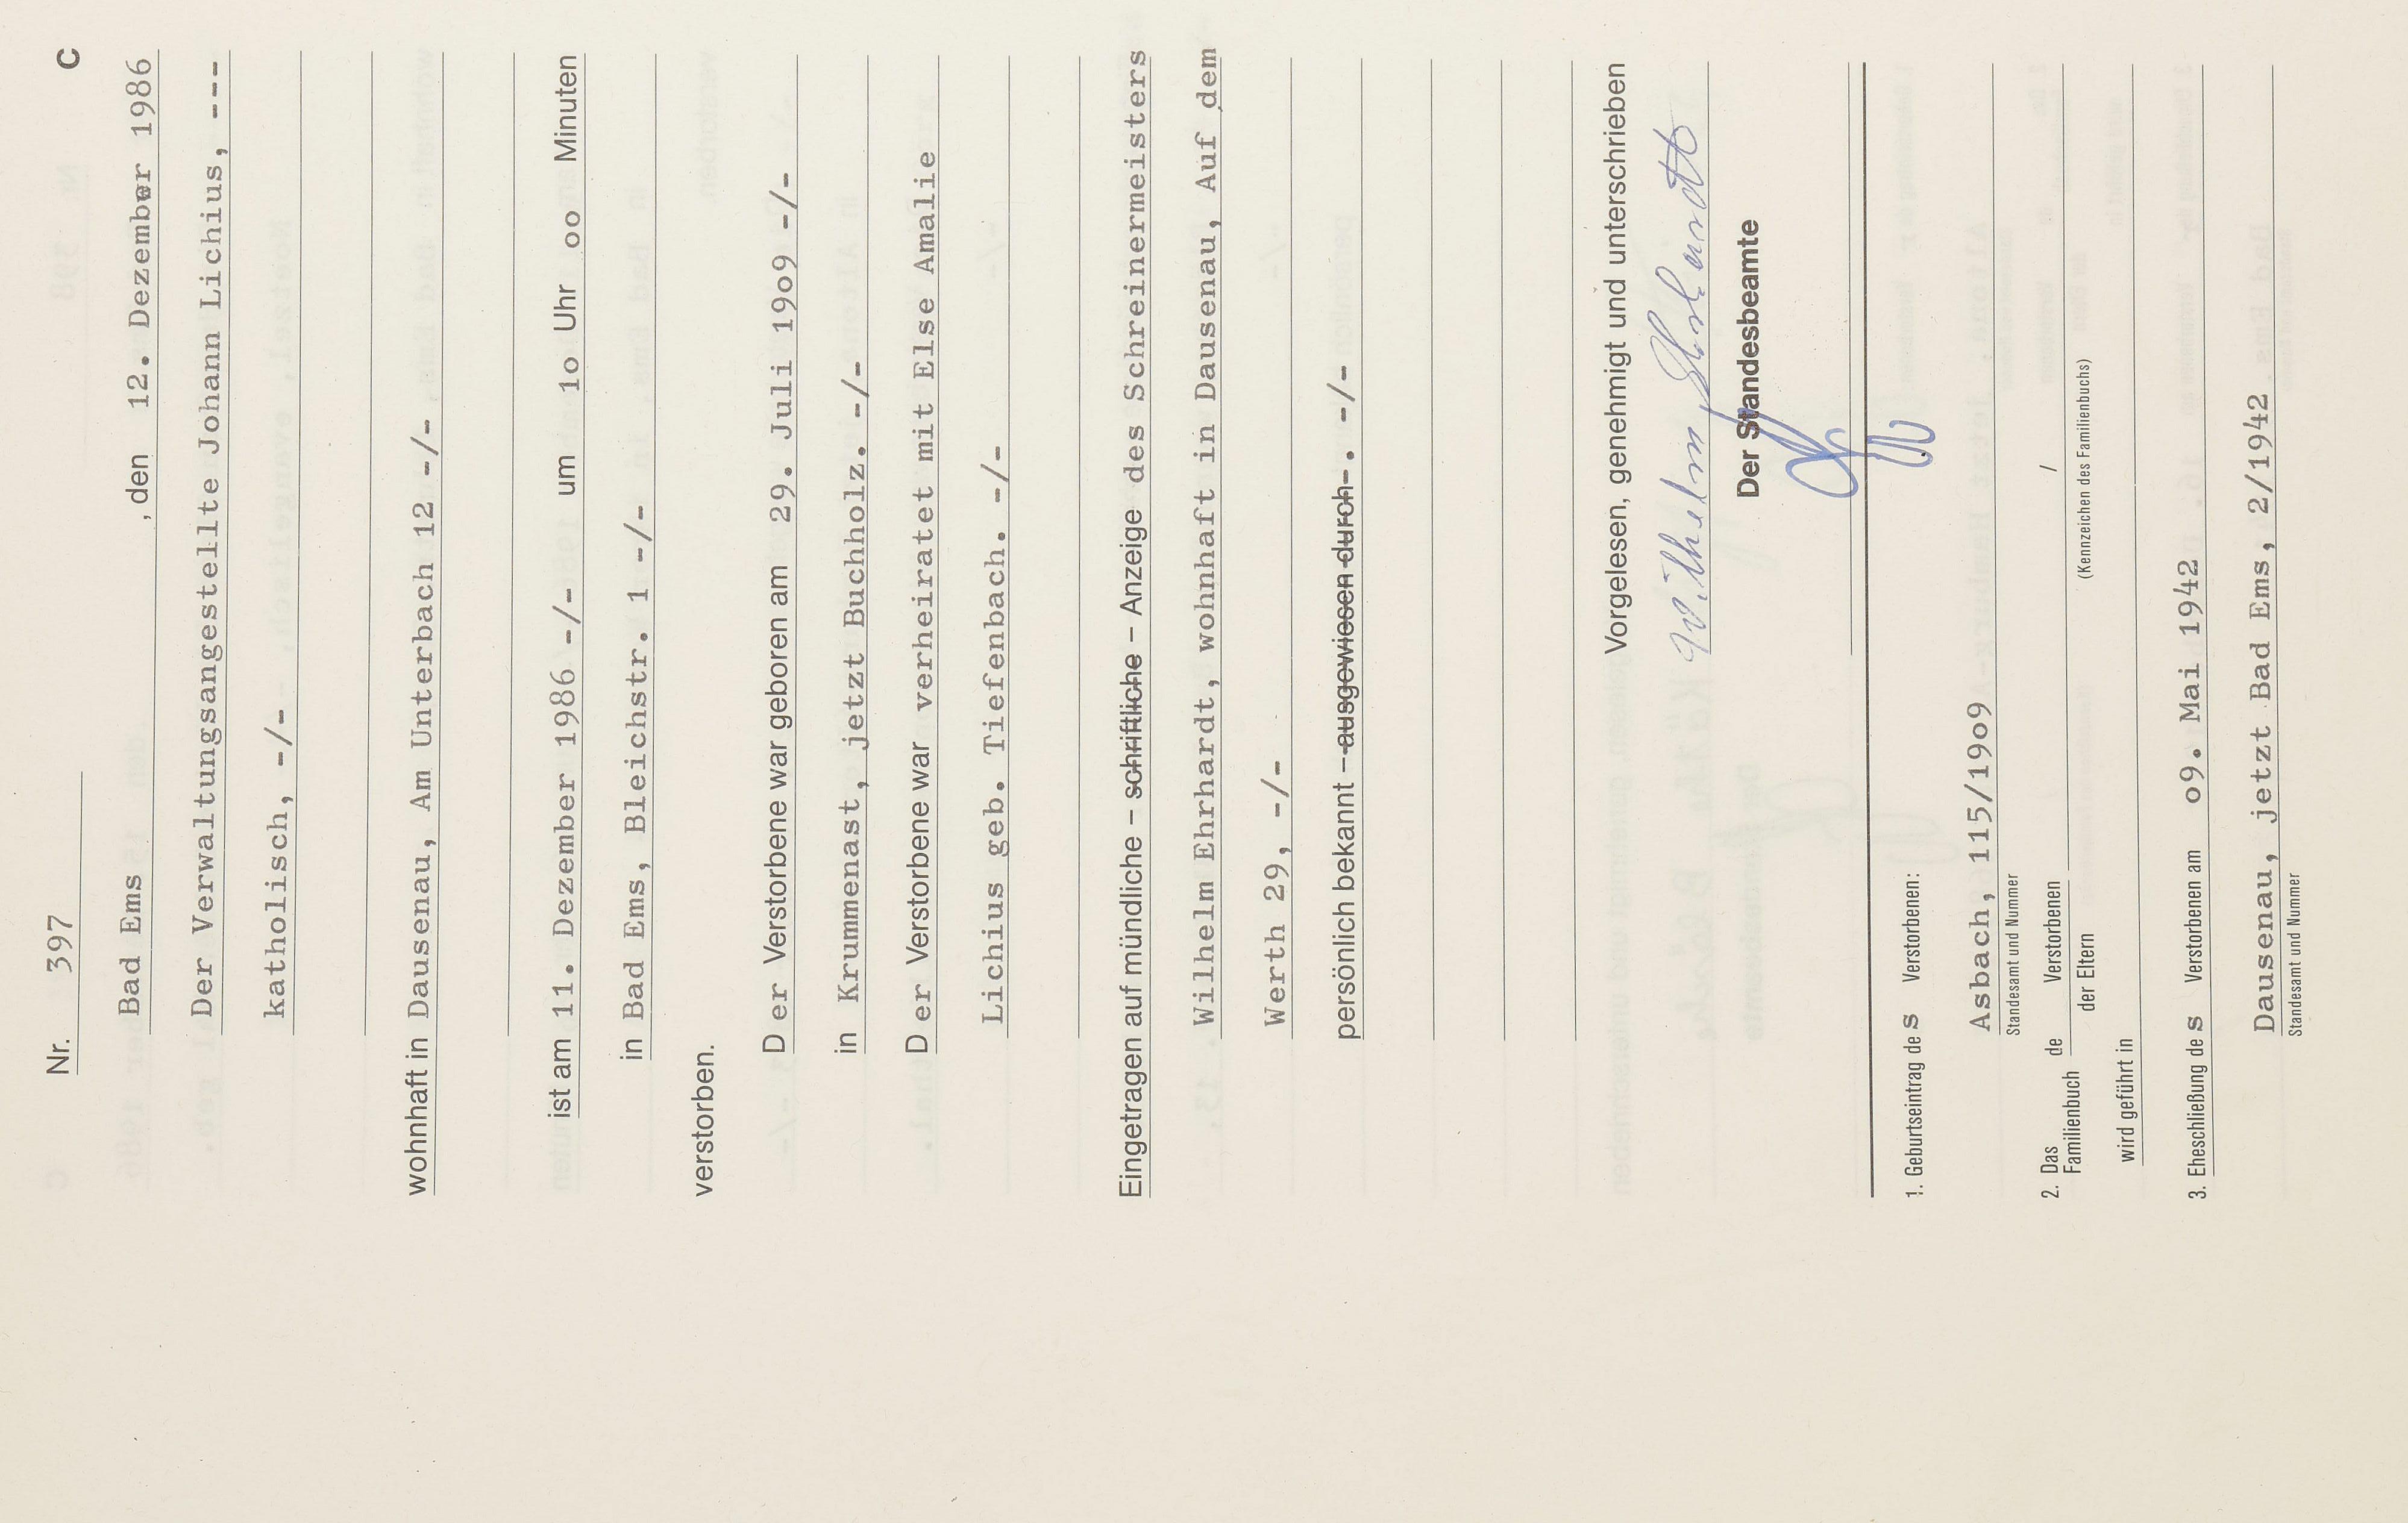 Nr. 397 C
Bad Ems , den 12. Dezember 1986
Der Verwaltungsangestellte Johann Lichius, ---
katholisch, -/-
wohnhaft in Dausenau, Am Unterbach 12 -/-
ist am 11. Dezember 1986 -/- um 1o Uhr oo Minuten
in Bad Ems, Bleichstr. 1 -/-
verstorben.
D er Verstorbene war geboren am 29. Juli 19o9 -/-
in Krummenast, jetzt Buchholz. -/-
D er Verstorbene war verheiratet mit Else Amalie
Lichius geb. Tiefenbach. -/-
Eingetragen auf mündliche – schriftliche – Anzeige des Schreinermeisters
Wilhelm Ehrhardt, wohnhaft in Dausenau, Auf dem
Werth 29, -/-
persönlich bekannt – ausgewiesen durch -. -/-
Vorgelesen, genehmigt und unterschrieben
Wilhelm Ehrhardt
Der Standesbeamte
1. Geburtseintrag de s Verstorbenen:
Asbach, 115/19o9
Standesamt und Nummer
2. Das Familienbuch de Verstorbenen /
der Eltern (Kennzeichen des Familienbuchs)
wird geführt in
3. Eheschließung de s Verstorbenen am o9. Mai 1942
Dausenau, jetzt Bad Ems, 2/1942
Standesamt und Nummer